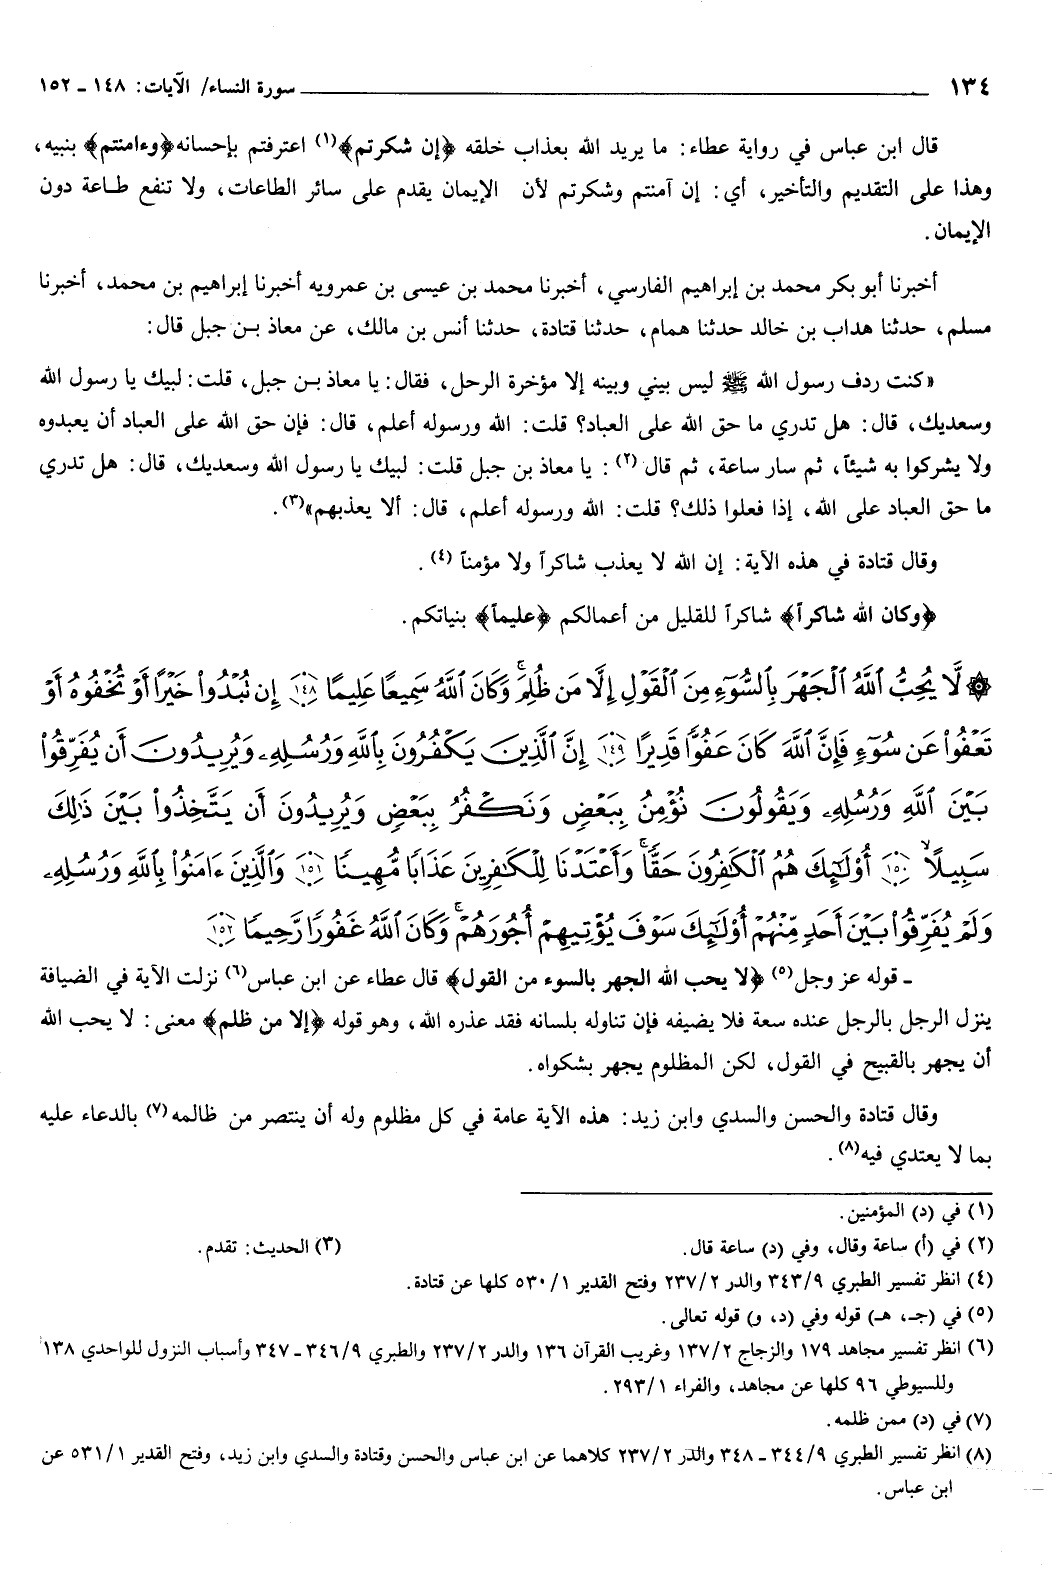 ١٣٤ سورة النساء/ الآيات: ١٤٨ ـ ١٥٢
قال ابن عباس في رواية عطاء: ما يريد الله بعذاب خلقه ﴿إن شكرتم﴾(١) اعترفتم بإحسانه ﴿وءامنتم﴾ بنبيه،
وهذا على التقديم والتأخير، أي: إن آمنتم وشكرتم لأن الإيمان يقدم على سائر الطاعات، ولا تنفع طـاعة دون
الإيمان.
أخبرنا أبو بكر محمد بن إبراهيم الفارسي، أخبرنا محمد بن عيسى بن عمرويه أخبرنا إبراهيم بن محمد، أخبرنا
مسلم، حدثنا هداب بن خالد حدثنا همام، حدثنا قتادة، حدثنا أنس بن مالك، عن معاذ بـن جبل قال:
«كنت ردف رسول الله ﷺ ليس بيني وبينه إلا مؤخرة الرحل، فقال: يا معاذ بـن جبل، قلت: لبيك يا رسول الله
وسعديك، قال: هل تدري ما حق الله على العباد؟ قلت: الله ورسوله أعلم، قال: فإن حق الله على العباد أن يعبدوه
ولا يشركوا به شيئاً، ثم سار ساعة، ثم قال (٢): يا معاذ بن جبل قلت: لبيك يا رسول الله وسعديك، قال: هل تدري
ما حق العباد على الله، إذا فعلوا ذلك؟ قلت: الله ورسوله أعلم، قال: ألا يعذبهم»(٣).
وقال قتادة في هذه الآية: إن الله لا يعذب شاكراً ولا مؤمناً (٤).
﴿وكان الله شاكراً﴾ شاكراً للقليل من أعمالكم ﴿عليماً﴾ بنياتكم.
۞ لَّا يُحِبُّ ٱللَّهُ ٱلْجَهْرَ بِٱلسُّوٓءِ مِنَ ٱلْقَوْلِ إِلَّا مَن ظُلِمَ ۚ وَكَانَ ٱللَّهُ سَمِيعًا عَلِيمًا ﴿١٤٨﴾ إِن تُبْدُوا۟ خَيْرًا أَوْ تُخْفُوهُ أَوْ
تَعْفُوا۟ عَن سُوٓءٍ فَإِنَّ ٱللَّهَ كَانَ عَفُوًّا قَدِيرًا ﴿١٤٩﴾ إِنَّ ٱلَّذِينَ يَكْفُرُونَ بِٱللَّهِ وَرُسُلِهِۦ وَيُرِيدُونَ أَن يُفَرِّقُوا۟
بَيْنَ ٱللَّهِ وَرُسُلِهِۦ وَيَقُولُونَ نُؤْمِنُ بِبَعْضٍ وَنَكْفُرُ بِبَعْضٍ وَيُرِيدُونَ أَن يَتَّخِذُوا۟ بَيْنَ ذَٰلِكَ
سَبِيلًا ﴿١٥٠﴾ أُو۟لَٰٓئِكَ هُمُ ٱلْكَٰفِرُونَ حَقًّا ۚ وَأَعْتَدْنَا لِلْكَٰفِرِينَ عَذَابًا مُّهِينًا ﴿١٥١﴾ وَٱلَّذِينَ ءَامَنُوا۟ بِٱللَّهِ وَرُسُلِهِۦ
وَلَمْ يُفَرِّقُوا۟ بَيْنَ أَحَدٍ مِّنْهُمْ أُو۟لَٰٓئِكَ سَوْفَ يُؤْتِيهِمْ أُجُورَهُمْ ۗ وَكَانَ ٱللَّهُ غَفُورًا رَّحِيمًا ﴿١٥٢﴾
ـ قوله عز وجل(٥) ﴿لا يحب الله الجهر بالسوء من القول﴾ قال عطاء عن ابن عباس(٦) نزلت الآية في الضيافة
ينزل الرجل بالرجل عنده سعة فلا يضيفه فإن تناوله بلسانه فقد عذره الله، وهو قوله ﴿إلا من ظلم﴾ معنى: لا يحب الله
أن يجهر بالقبيح في القول، لكن المظلوم يجهر بشكواه.
وقال قتادة والحسن والسدي وابن زيد: هذه الآية عامة في كل مظلوم وله أن ينتصر من ظالمه(٧) بالدعاء عليه
بما لا يعتدي فيه(٨).
(١) في (د) المؤمنين.
(٢) في (أ) ساعة وقال، وفي (د) ساعة قال. (٣) الحديث: تقدم.
(٤) انظر تفسير الطبري ٣٤٣/٩ والدر ٢٣٧/٢ وفتح القدير ٥٣٠/١ كلها عن قتادة.
(٥) في (جـ، هـ) قوله وفي (د، و) قوله تعالى.
(٦) انظر تفسير مجاهد ١٧٩ والزجاج ١٣٧/٢ وغريب القرآن ١٣٦ والدر ٢٣٧/٢ والطبري ٣٤٦/٩ ـ ٣٤٧ وأسباب النزول للواحدي ١٣٨
وللسيوطي ٩٦ كلها عن مجاهد، والفراء ٢٩٣/١.
(٧) في (د) ممن ظلمه.
(٨) انظر تفسير الطبري ٣٤٤/٩ ـ ٣٤٨ والدر ٢٣٧/٢ كلاهما عن ابن عباس والحسن وقتادة والسدي وابن زيد، وفتح القدير ٥٣١/١ عن
ابن عباس.